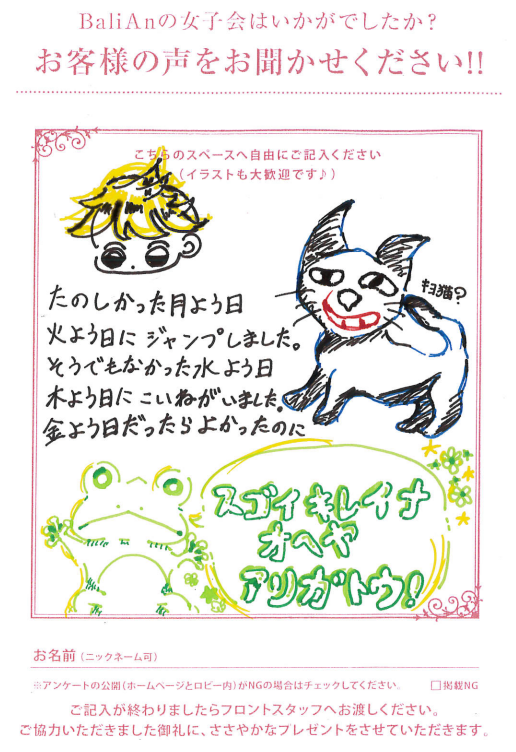 BaliAnの女子会はいかがでしたか?
お客様の声をお聞かせください!!
こちらのスペースへ自由にご記入ください
(イラストも大歓迎です♪)
たのしかった月よう日
火よう日に ジャンプしました。
そうでもなかった水よう日
木よう日に こいねがいました。
金よう日だったらよかったのに
猫?
スゴイ キレイナ
オヘヤ
アリガトウ!
お名前(ニックネーム可)
※アンケートの公開(ホームページとロビー内)がNGの場合はチェックしてください。 □掲載NG
ご記入が終わりましたらフロントスタッフへお渡しください。
ご協力いただきました御礼に、ささやかなプレゼントをさせていただきます。